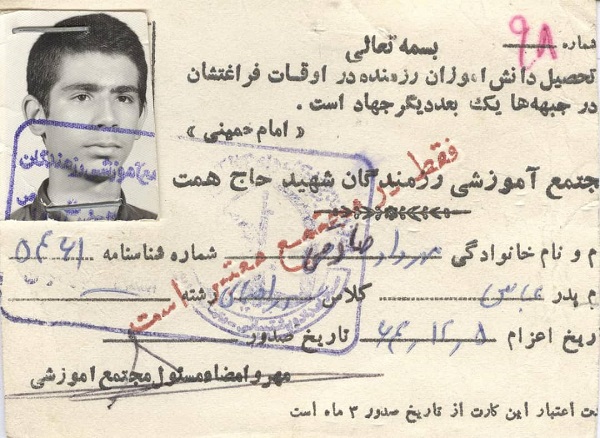 شماره ۹۸
بسمه تعالی
تحصیل دانش آموزان رزمنده در اوقات فراغتشان
در جبهه‌ها یک بعد دیگر جهاد است .
« امام خمینی »
جتمع آموزشی رزمندگان شهید حاج همت
فقط در مجتمع معتبر است
م و نام خانوادگی شماره شناسنامه ۵۴۶۱
م پدر عباس کلاس رشته
ریخ اعزام ۶۴,۱۲,۵ تاریخ صدور
مهر و امضاء مسئول مجتمع آموزشی
ت اعتبار این کارت از تاریخ صدور ۳ ماه است